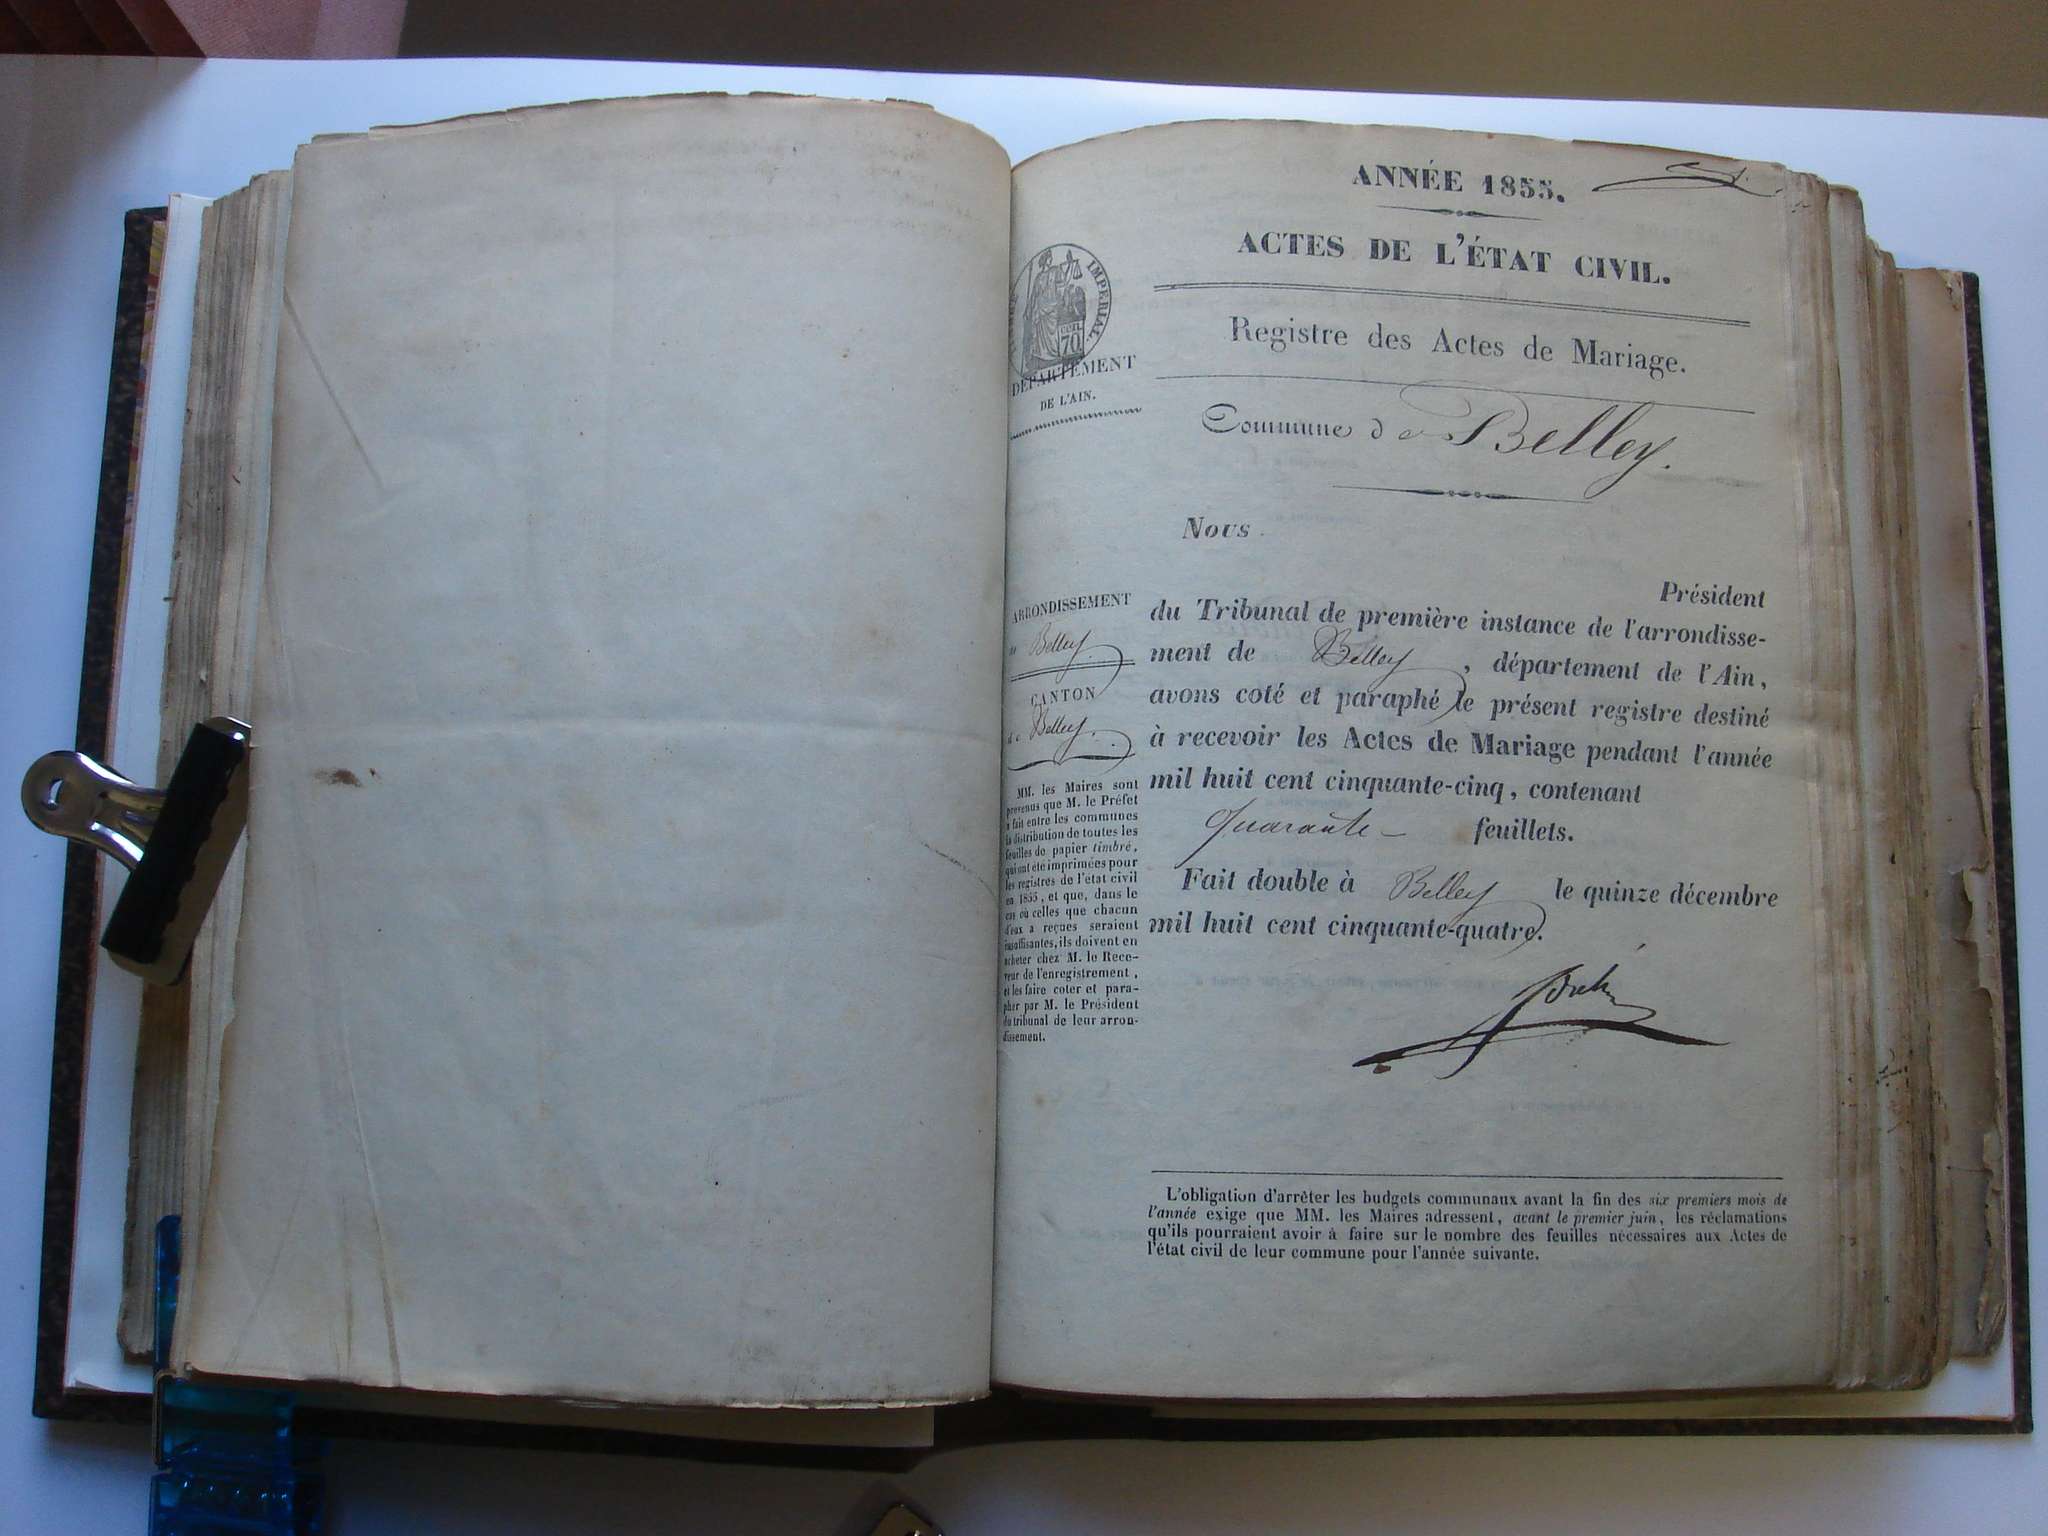 ANNÉE 1855.
ACTES DE L'ÉTAT CIVIL.
Registre des Actes de Mariage.
Commune de Belley.
IMPERIAL.
CEN.
70
DÉPARTEMENT
DE L'AIN.
Nous
Président
du Tribunal de première instance de l'arrondisse-
ment de Belley, département de l'Ain,
avons coté et paraphé le présent registre destiné
à recevoir les Actes de Mariage pendant l'année
mil huit cent cinquante-cinq, contenant
Quarante feuillets.
Fait double à Belley le quinze décembre
mil huit cent cinquante-quatre.
ARRONDISSEMENT
de Belley.
CANTON
de Belley.
MM. les Maires sont
prévenus que M. le Préfet
a fait entre les communes
la distribution de toutes les
feuilles de papier timbré,
qui ont été imprimées pour
les registres de l'état civil
en 1855, et que, dans le
cas où celles que chacun
d'eux a reçues seraient
insuffisantes, ils doivent en
acheter chez M. le Rece-
veur de l'enregistrement,
et les faire coter et para-
pher par M. le Président
du tribunal de leur arron-
dissement.
L'obligation d'arrêter les budgets communaux avant la fin des six premiers mois de
l'année exige que MM. les Maires adressent, avant le premier juin, les réclamations
qu'ils pourraient avoir à faire sur le nombre des feuilles nécessaires aux Actes de
l'état civil de leur commune pour l'année suivante.